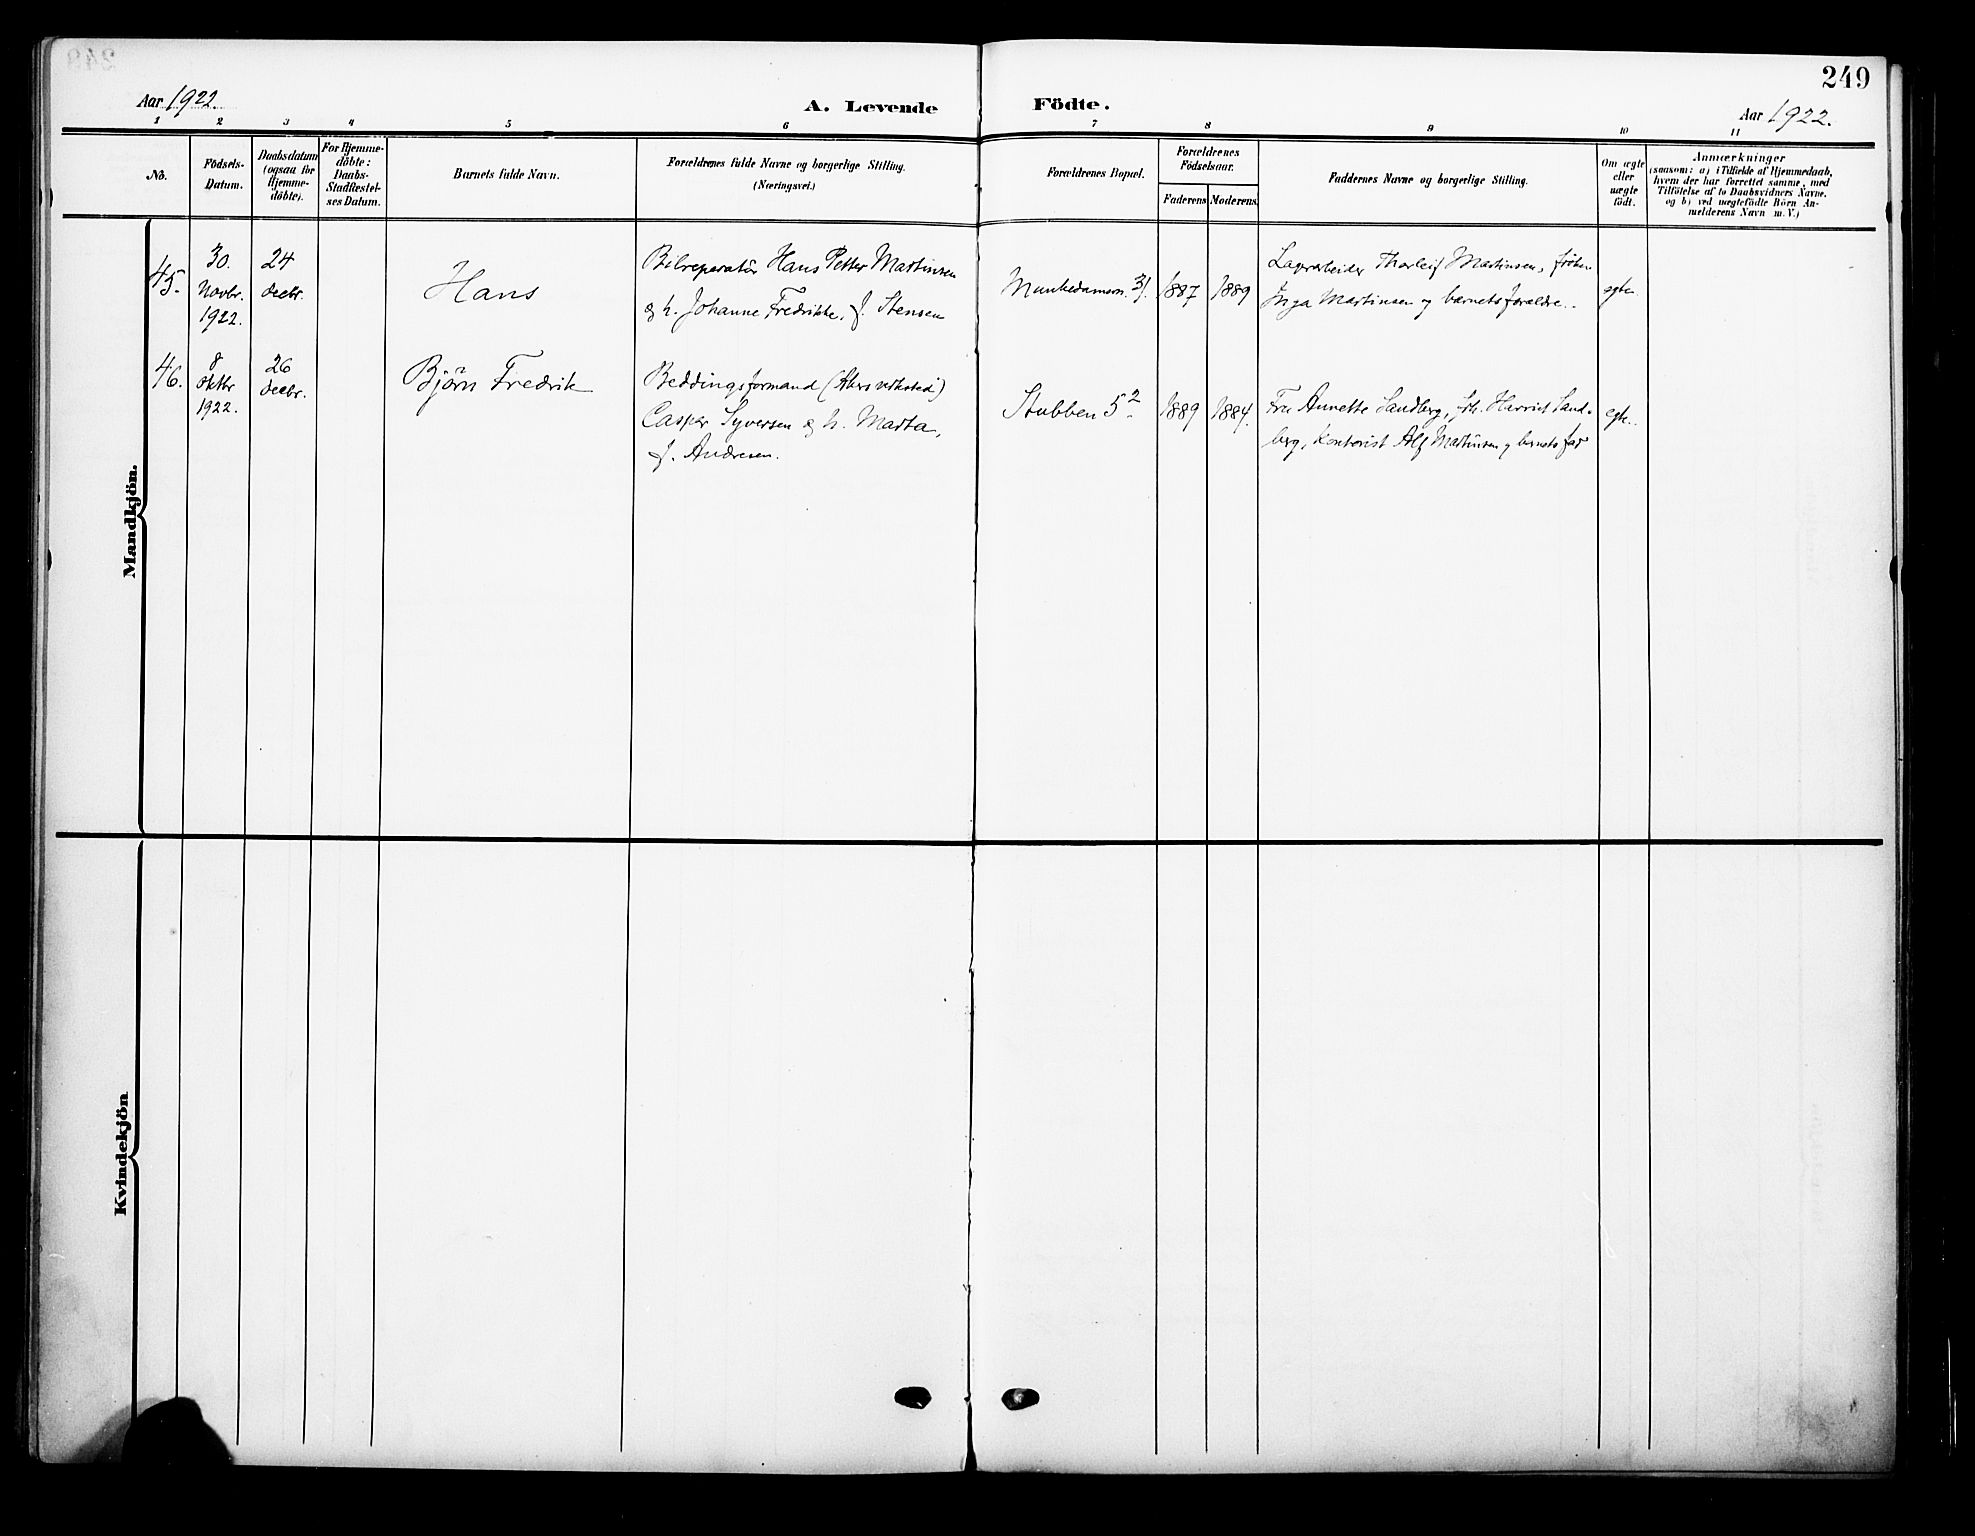 249
Aar 1922.
A. Levende Födte.
Aar 1922.
1 2 3 4 5 6 7 8 9 10 11
No.
Födsels-
Datum.
Daabsdatum
(ogsaa for
Hjemme-
döbte).
For Hjemme-
döbte:
Daabs-
Stadfæstel-
ses Datum.
Barnets fulde Navn.
Forældrenes fulde Navne og borgerlige Stilling.
(Næringsvei.)
Forældrenes Bopæl.
Forældrenes
Födselsaar.
Faderens Moderens.
Faddernes Navne og borgerlige Stilling.
Om ægte
eller
uægte
födt.
Anmærkninger
(saasom: a) i Tilfælde af Hjemmedaab,
hvem der har forrettet samme, med
Tilföielse af to Daabsvidners Navne.
og b) ved uægtefödte Börn An-
melderens Navn m. V.)
Mandkjön.
45.
30.
novbr.
1922.
24
decbr.
Hans
Bilreparatör Hans Petter Martinsen
og h. Johanne Fredrikke, f. Stensen
Munkedamsvn. 31.
1887
1889
Thorleif Martinsen, frøken
Inga Martinsen og barnets forældre.
egte
46.
8
oktbr
1922.
26
decbr.
Björn Fredrik
Beddingsformand (Akers veksted)
Casper Syversen og h. Marta,
f. Andresen.
Stubben 5 2
1889
1884.
Fru Annette Sandberg, frk. Harriet Sand-
berg, kontorist Alf Martinsen og barnets far
egte.
Kvindekjön